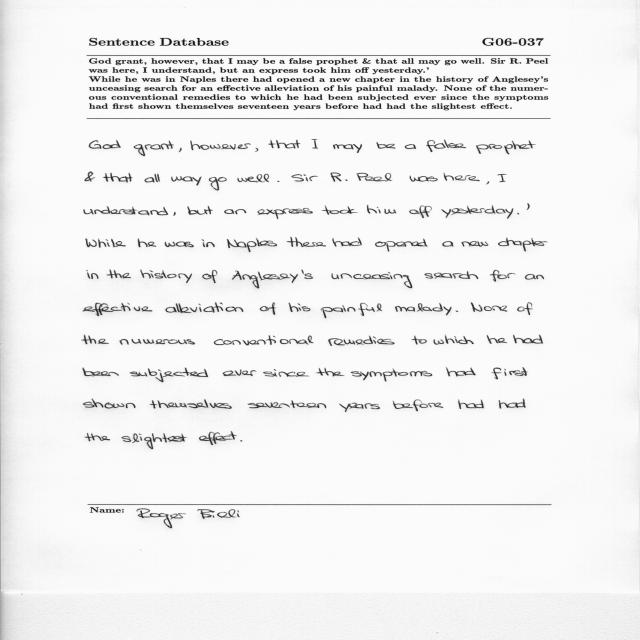 Sentence Database G06-037
God grant, however, that I may be a false prophet & that all may go well. Sir R. Peel
was here, I understand, but an express took him off yesterday.'
While he was in Naples there had opened a new chapter in the history of Anglesey's
unceasing search for an effective alleviation of his painful malady. None of the numer-
ous conventional remedies to which he had been subjected ever since the symptoms
had first shown themselves seventeen years before had had the slightest effect.
God grant, however, that I may be a false prophet
& that all way go well. Sir R. Peel was here, I
understand, but an express took him off yesterday.'
While he was in Naples there had opened a new chapter
in the history of Anglesey's unceasing search for an
effective alleviation of his painful malady. None of
the numerous conventional remedies to which he had
been subjected ever since the symptoms had first
shown themselves seventeen years before had had
the slightest effect.
Name: Roger Bieli